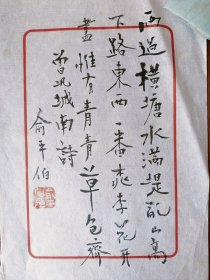 雨過橫塘水滿堤亂山高
下路東西一番桃李花開
盡惟有青青草色齊
曾鞏城南詩
俞平伯